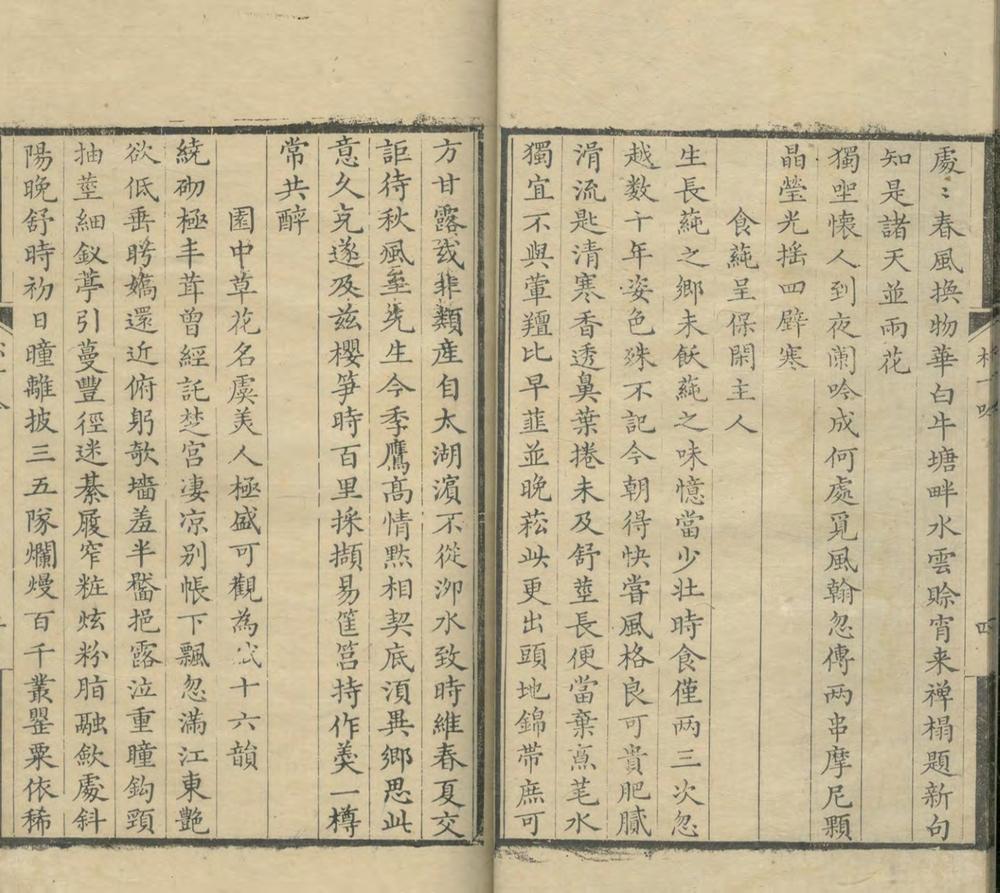 處〻春風換物華白牛塘畔水雲賒宵来禅榻題新句
知是諸天並雨花
獨坐懷人到夜闌吟成何處覓風翰忽傳两串摩尼顆
晶瑩光揺四壁寒
食蒓呈保閑主人
生長蒓之鄉未飫蒓之味憶當少壮時食僅两三次忽
越数十年姿色殊不記今朝得快嘗風格良可貴肥膩
滑流匙清寒香透鼻葉捲未及舒莖長便當棄烹芼水
獨宜不與葷羶比早韮並晚菘此更出頭地錦帯庶可
四
方甘露或非類產自太湖濱不從泖水致時維春夏交
詎待秋風至先生今季鷹髙情㸃相契底湏異鄉思此
意久克遂及兹櫻笋時百里採擷易筐筥持作羹一樽
常共醉
園中草花名虞美人極盛可觀為成十六韻
繞砌極丰茸曾經託楚宫凄凉别帳下飄忽滿江東艶
欲低垂眄嬌還近俯躬欹墻羞半靨挹露泣重瞳鈎頸
抽莖細釵蕚引蔓豐徑迷綦履窄粧炫粉脂融歛處斜
陽晚舒時初日曈離披三五隊爛熳百千叢罌粟依稀